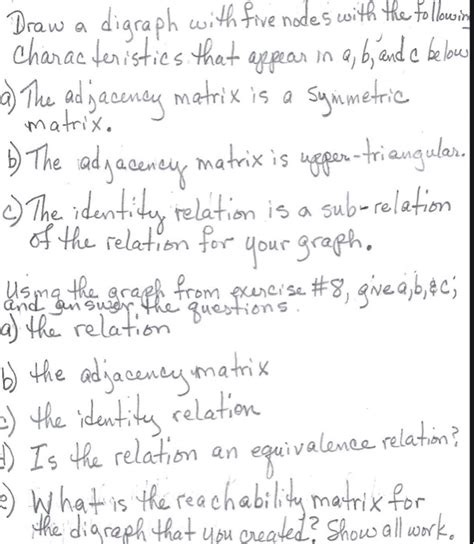 Draw a digraph with five nodes with the followin
characteristics that appear in a, b, and c below
a) The adjacency matrix is a symmetric
matrix.
b) The adjacency matrix is upper-triangular.
c) The identity relation is a sub-relation
of the relation for your graph.
Using the graph from exercise #8, give a, b, & c;
and answer the questions.
a) the relation
b) the adjacency matrix
c) the identity relation
d) Is the relation an equivalence relation?
e) What is the reachability matrix for
the digraph that you created? Show all work.